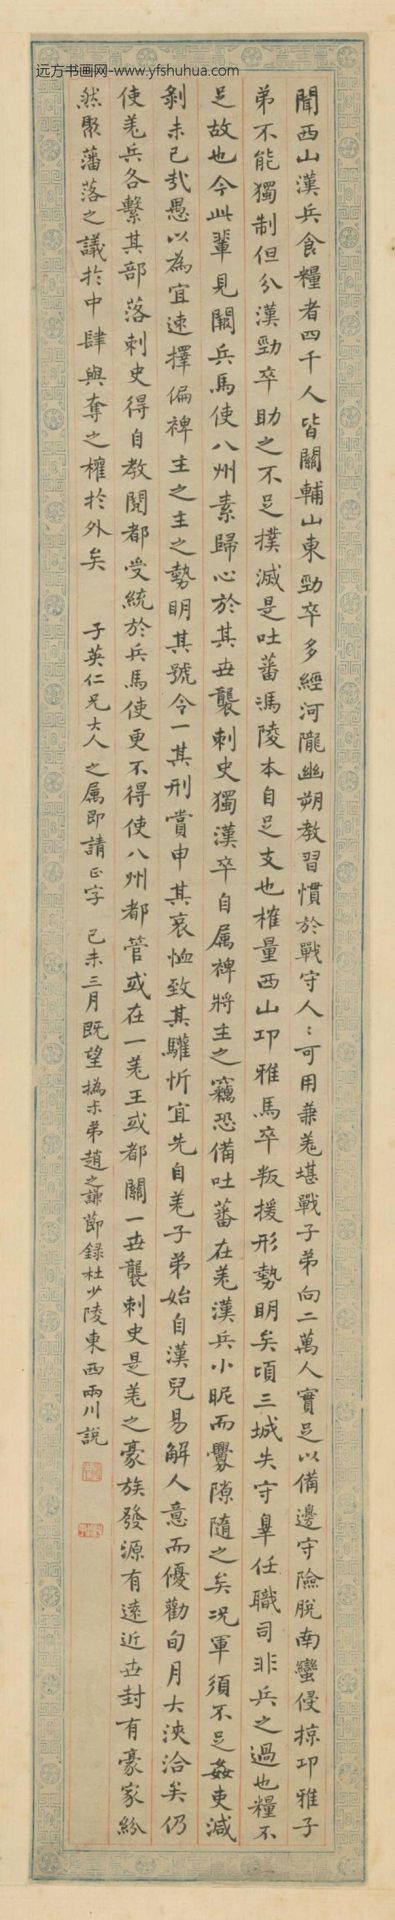 远方书画网-www.yfshuhua.com
聞西山漢兵食糧者四千人皆關輔山東勁卒多經河隴幽朔教習慣於戰守人〻可用兼羌堪戰子弟向二萬人實足以備邊守險脫南蠻侵掠邛雅子
弟不能獨制但分漢勁卒助之不足撲滅是吐蕃馮陵本自足支也榷量西山邛雅馬卒叛援形勢明矣頃三城失守辠任職司非兵之過也糧不
足故也今此輩見闕兵馬使八州素歸心於其世襲刺史獨漢卒自属裨將主之竊恐備吐蕃在羌漢兵小昵而釁隙隨之矣況軍須不足姦吏減
剝未已㢤愚以為宜速擇偏裨主之主之勢明其號令一其刑賞申其哀恤致其驩忻宜先自羌子弟始自漢兒易解人意而優勸旬月大浹洽矣仍
使羌兵各繫其部落刺史得自教閱都受統於兵馬使更不得使八州都管或在一羌王或都關一世襲刺史是羌之豪族發源有遠近世封有豪家紛
然聚藩落之議於中肆與奪之權於外矣 子英仁兄大人之属即請正字 己未三月既望撝尗弟趙之謙節録杜少陵東西兩川說